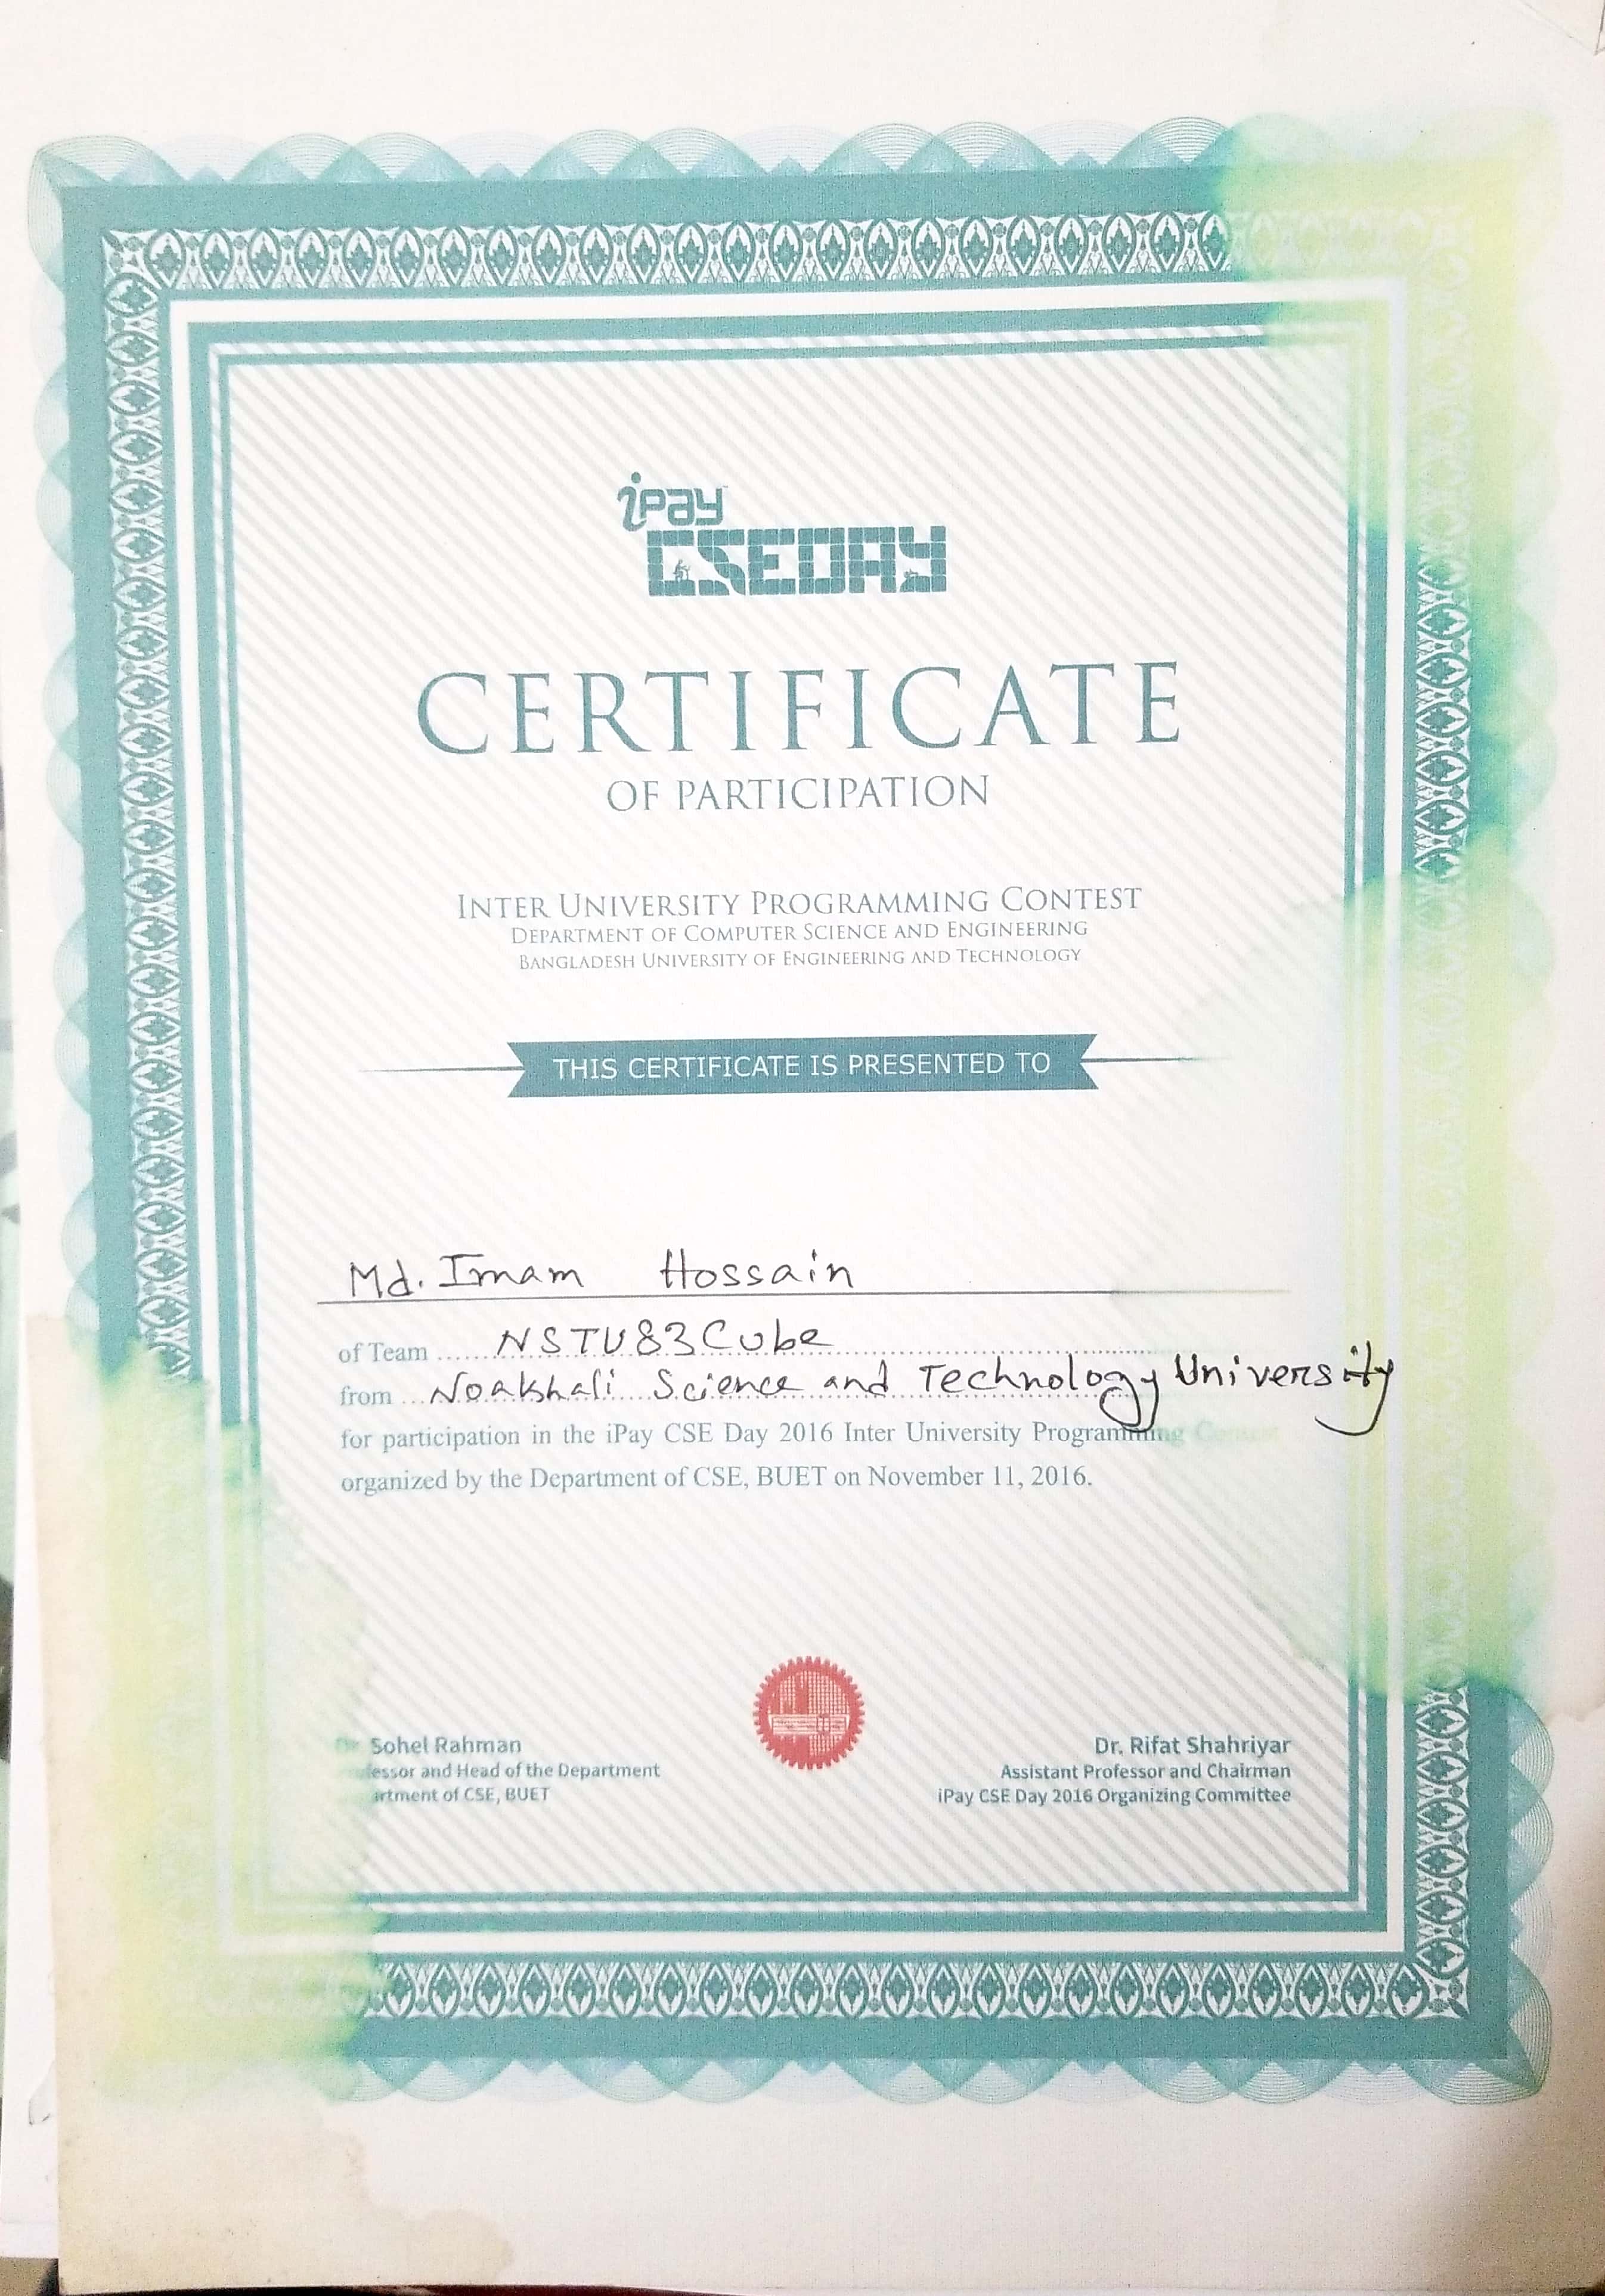 iPay
CSEDAY
CERTIFICATE
OF PARTICIPATION
INTER UNIVERSITY PROGRAMMING CONTEST
DEPARTMENT OF COMPUTER SCIENCE AND ENGINEERING
BANGLADESH UNIVERSITY OF ENGINEERING AND TECHNOLOGY
THIS CERTIFICATE IS PRESENTED TO
Md. Imam Hossain
of Team ...... NSTU83Cube
from ... Noakhali Science and Technology University
for participation in the iPay CSE Day 2016 Inter University Programming Contest
organized by the Department of CSE, BUET on November 11, 2016.
Dr. Sohel Rahman
essor and Head of the Department
artment of CSE, BUET
Dr. Rifat Shahriyar
Assistant Professor and Chairman
iPay CSE Day 2016 Organizing Committee